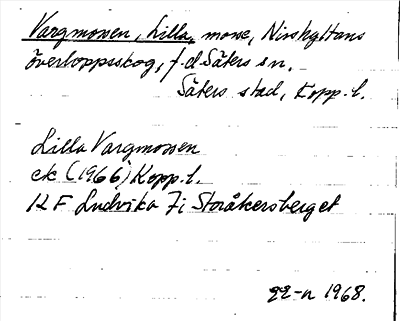 Vargmossen, Lilla, mosse, Nisshyttans
överloppsskog, f.d Säters sn.
Säters stad, Kopp. l.
Lilla Vargmossen
ek (1966) Kopp. l.
12 F Ludvika 7i Storåkersberget
22-n 1968.